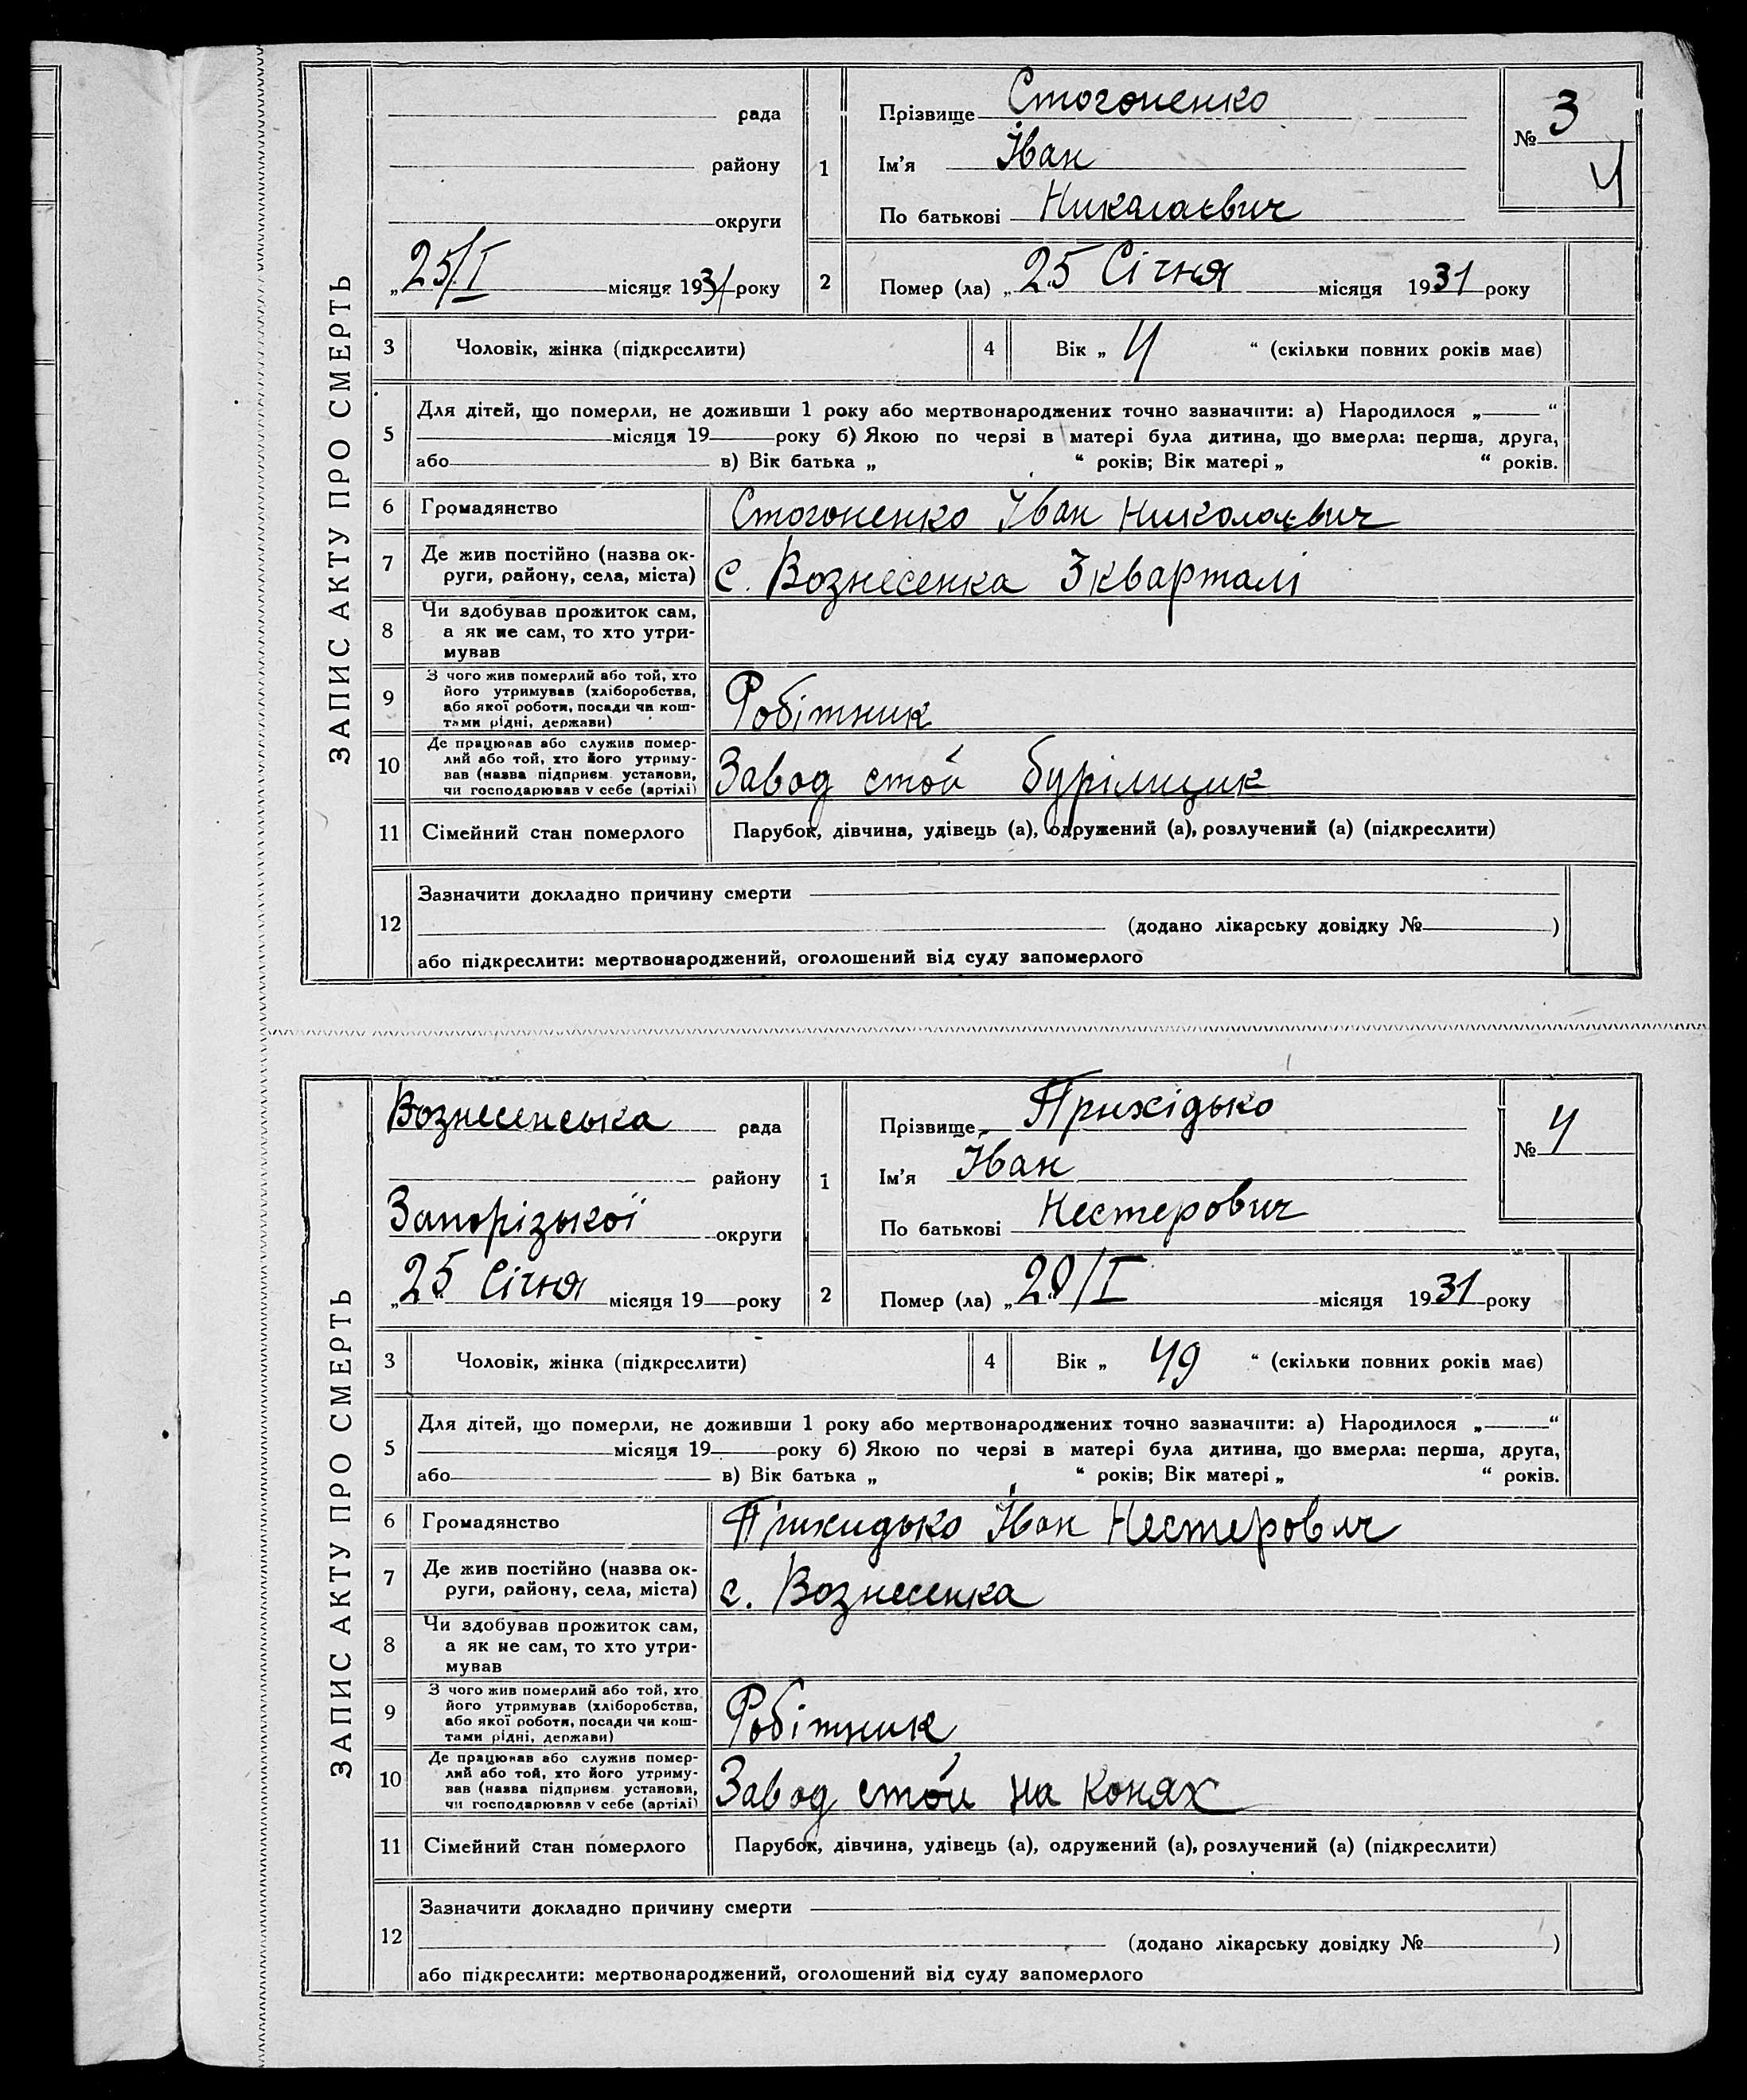 ЗАПИС АКТУ ПРО СМЕРТЬ
рада
району
округи
„25/I місяця 1931 року
1
Прізвище Стогоненко
Ім'я Іван
По батькові Никалаєвич
№ 3
4
2
Помер (ла) „25 Січня місяця 1931 року
3 Чоловік, жінка (підкреслити)
4 Вік „ 4 “ (скільки повних років має)
5
Для дітей, що померли, не доживши 1 року або мертвонароджених точно зазначити: а) Народилося „ “
місяця 19 року б) Якою по черзі в матері була дитина, що вмерла: перша, друга,
або в) Вік батька „ “ років; Вік матері „ “ років.
6 Громадянство Стогоненко Іван Николаєвич
7 Де жив постійно (назва ок-
руги, району, села, міста) с. Вознесенка 3 кварталі
8 Чи здобував прожиток сам,
а як не сам, то хто утри-
мував
9 З чого жив померлий або той, хто
його утримував (хліборобства,
або якої роботи, посади чи кош-
тами рідні, держави) Робітник
10 Де працював або служив помер-
лий або той, хто його утриму-
вав (назва підприєм. установи,
чи господарював у себе (артілі) Завод стой бурілщик
11 Сімейний стан померлого Парубок, дівчина, удівець (а), одружений (а), розлучений (а) (підкреслити)
12
Зазначити докладно причину смерти
(додано лікарську довідку № )
або підкреслити: мертвонароджений, оголошений від суду запомерлого
ЗАПИС АКТУ ПРО СМЕРТЬ
Вознесенська рада
району
Запорізької округи
„25 Січня місяця 19 року
1
Прізвище Прихідько
Ім'я Іван
По батькові Нестерович
№ 4
2
Помер (ла) „20/I місяця 1931 року
3 Чоловік, жінка (підкреслити)
4 Вік „ 49 “ (скільки повних років має)
5
Для дітей, що померли, не доживши 1 року або мертвонароджених точно зазначити: а) Народилося „ “
місяця 19 року б) Якою по черзі в матері була дитина, що вмерла: перша, друга,
або в) Вік батька „ “ років; Вік матері „ “ років.
6 Громадянство Прихидько Іван Нестерович
7 Де жив постійно (назва ок-
руги, району, села, міста) с. Вознесенка
8 Чи здобував прожиток сам,
а як не сам, то хто утри-
мував
9 З чого жив померлий або той, хто
його утримував (хліборобства,
або якої роботи, посади чи кош-
тами рідні, держави) Робітник
10 Де працював або служив помер-
лий або той, хто його утриму-
вав (назва підприєм. установи,
чи господарював у себе (артілі) Завод стой на конях
11 Сімейний стан померлого Парубок, дівчина, удівець (а), одружений (а), розлучений (а) (підкреслити)
12
Зазначити докладно причину смерти
(додано лікарську довідку № )
або підкреслити: мертвонароджений, оголошений від суду запомерлого